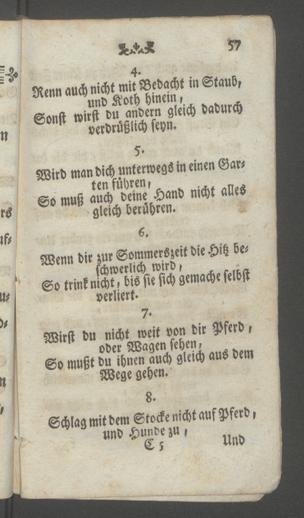 57
4.
Renn auch nicht mit Bedacht in Staub,
und Koth hinein,
Sonst wirst du andern gleich dadurch
verdrüßlich seyn.
5.
Wird man dich unterwegs in einen Gar-
ten führen,
So muß auch deine Hand nicht alles
gleich berühren.
6.
Wenn dir zur Sommerszeit die Hitz be-
schwerlich wird,
So trink nicht, bis sie sich gemache selbst
verliert.
7.
Wirst du nicht weit von dir Pferd,
oder Wagen sehen,
So mußt du ihnen auch gleich aus dem
Wege gehen.
8.
Schlag mit dem Stocke nicht auf Pferd,
und Hunde zu,
C 5 Und